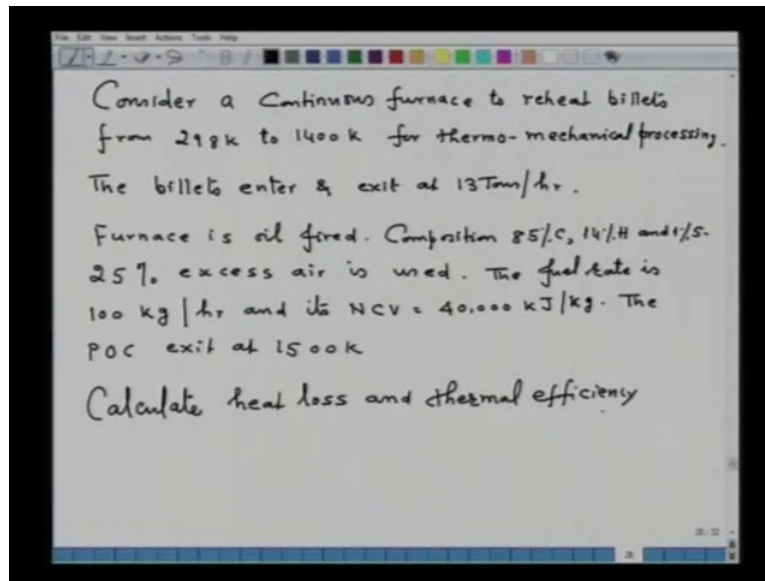 File Edit View Insert Actions Tools Help
Consider a Continuous furnace to reheat billets
from 298K to 1400K for thermo-mechanical processing.
The billets enter & exit at 13 Tons/hr.
Furnace is oil fired. Composition 85%C, 14%H and 1%S.
25% excess air is used. The fuel rate is
100 kg/hr and its NCV = 40,000 kJ/kg. The
POC exit at 1500K
Calculate heat loss and thermal efficiency